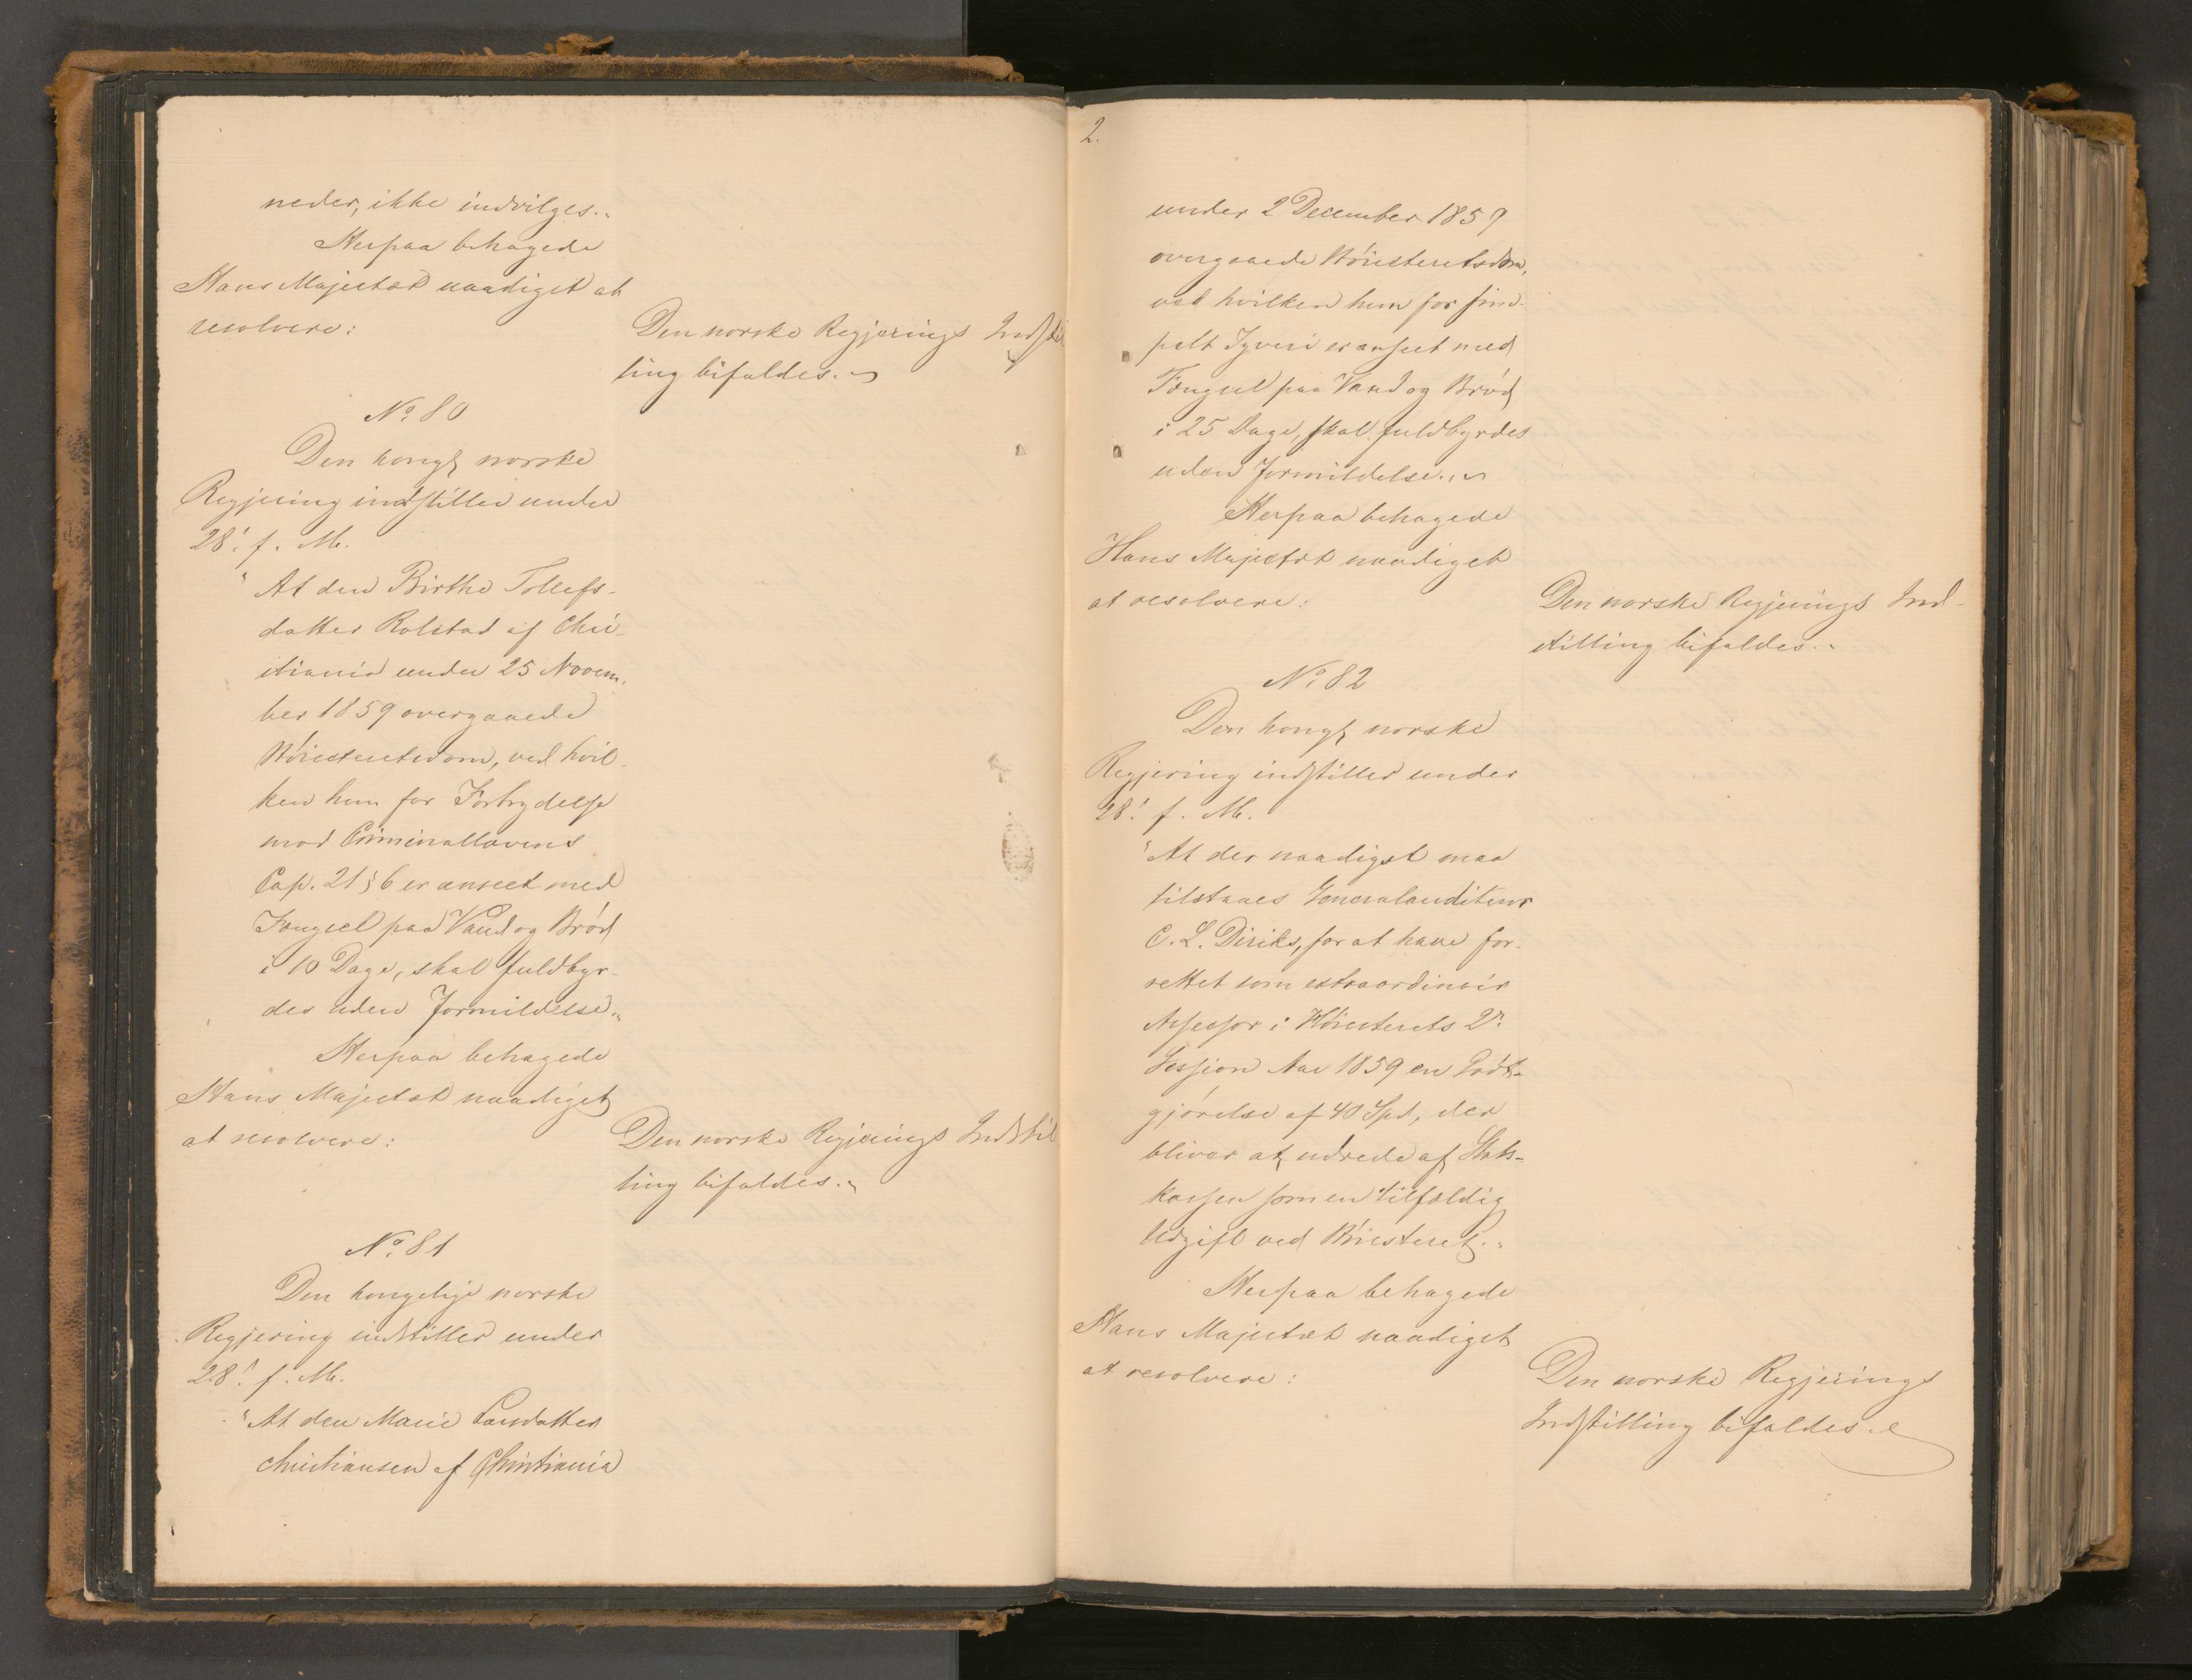 neder, ikke indvilges.„
Herpaa behagede
Hans Majestæt naadigst at
resolvere:
Den norske Regjerings Indstil
ling bifaldes.
No. 80
Den kongl norske
Regjering indstiller under
28! f. M.
"At den Birthe Tollefs-
datter Rolstad af Chri-
stiania under 25 Novem-
ber 1859 overgaaede
Höiesteretsdom, ved hvil-
ken hun for Forbrydelse
mod Criminallovens
Cap. 21 § 6 er anseet med
Fængsel paa Vand og Brød
i 10 Dage, skal fuldbyr-
des uden Formildelse.„
Herpaa behagede
Hans Majestæt naadigst
at resolvere:
Den norske Regjerings Indstil
ling bifaldes.„
No. 81
Den kongelige norske
Regjering indstiller under
28! f. M.
"At den Marie Larsdatter
Christiansen af Christiania
2.
under 2 December 1859
overgaaede Höiesteretsdom,
ved hvilken hun for sim-
pelt Tyveri er anseet med
Fængsel paa Vand og Brød
i 25 Dage, skal fuldbyrdes
uden Formildelse.„
Herpaa behagede
Hans Majestæt naadigst
at resolvere:
Den norske Regjerings Ind-
stilling bifaldes.„
No. 82
Den kongl norske
Regjering indstiller under
28! f. M.
"At der naadigst maa
tilstaaes Generalauditeur
C. L. Diriks, for at have for-
rettet som extraordinair
Assessor i Höiesterets 2n
Session Aar 1859 en Godt-
gjørelse af 40 Spd, der
bliver at udrede af Stats-
kassen som en tilfældig
Udgift ved Höiesteret.„
Herpaa behagede
Hans Majestæt naadigst
at resolvere:
Den norske Regjerings
Indstilling bifaldes.